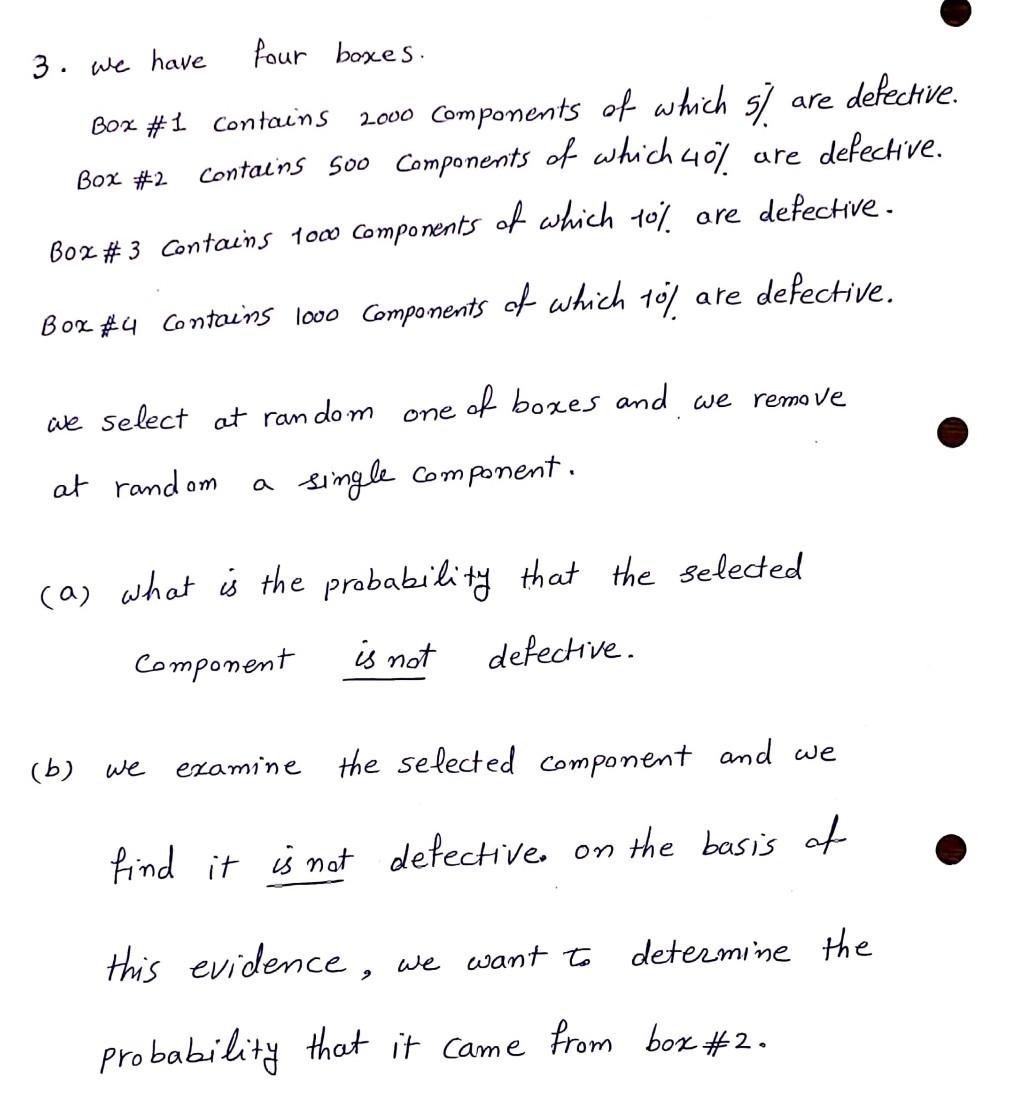 3. we have four boxes.
Box #1 contains 2000 components of which 5% are defective.
Box #2 contains 500 components of which 40% are defective.
Box #3 contains 1000 components of which 10% are defective.
Box #4 contains 1000 components of which 10% are defective.
we select at random one of boxes and we remove
at random a single component.
(a) what is the probability that the selected
component is not defective.
(b) we examine the selected component and we
find it is not defective. on the basis of
this evidence, we want to determine the
probability that it came from box #2.